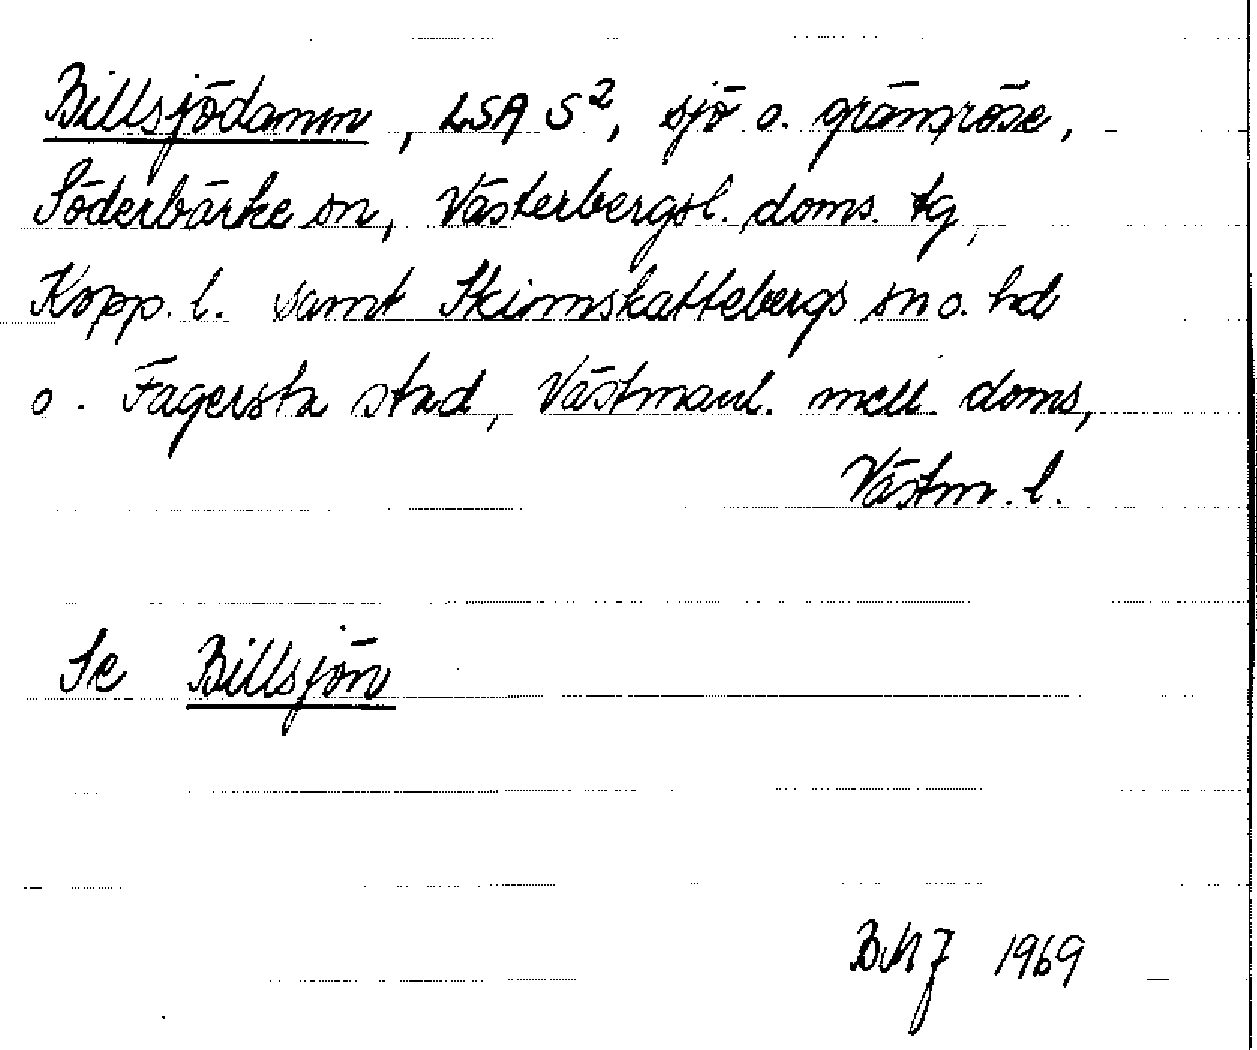 Billsjödamm, LSA S², sjö o. gränsröse,
Söderbärke sn, Västerbergsl. doms. tg,
Kopp. l. samt Skinnskattebergs sn o. hd
o. Fagersta stad, Västmanl. mell. doms,
Västm. l.
Se Billsjön
BMJ 1969